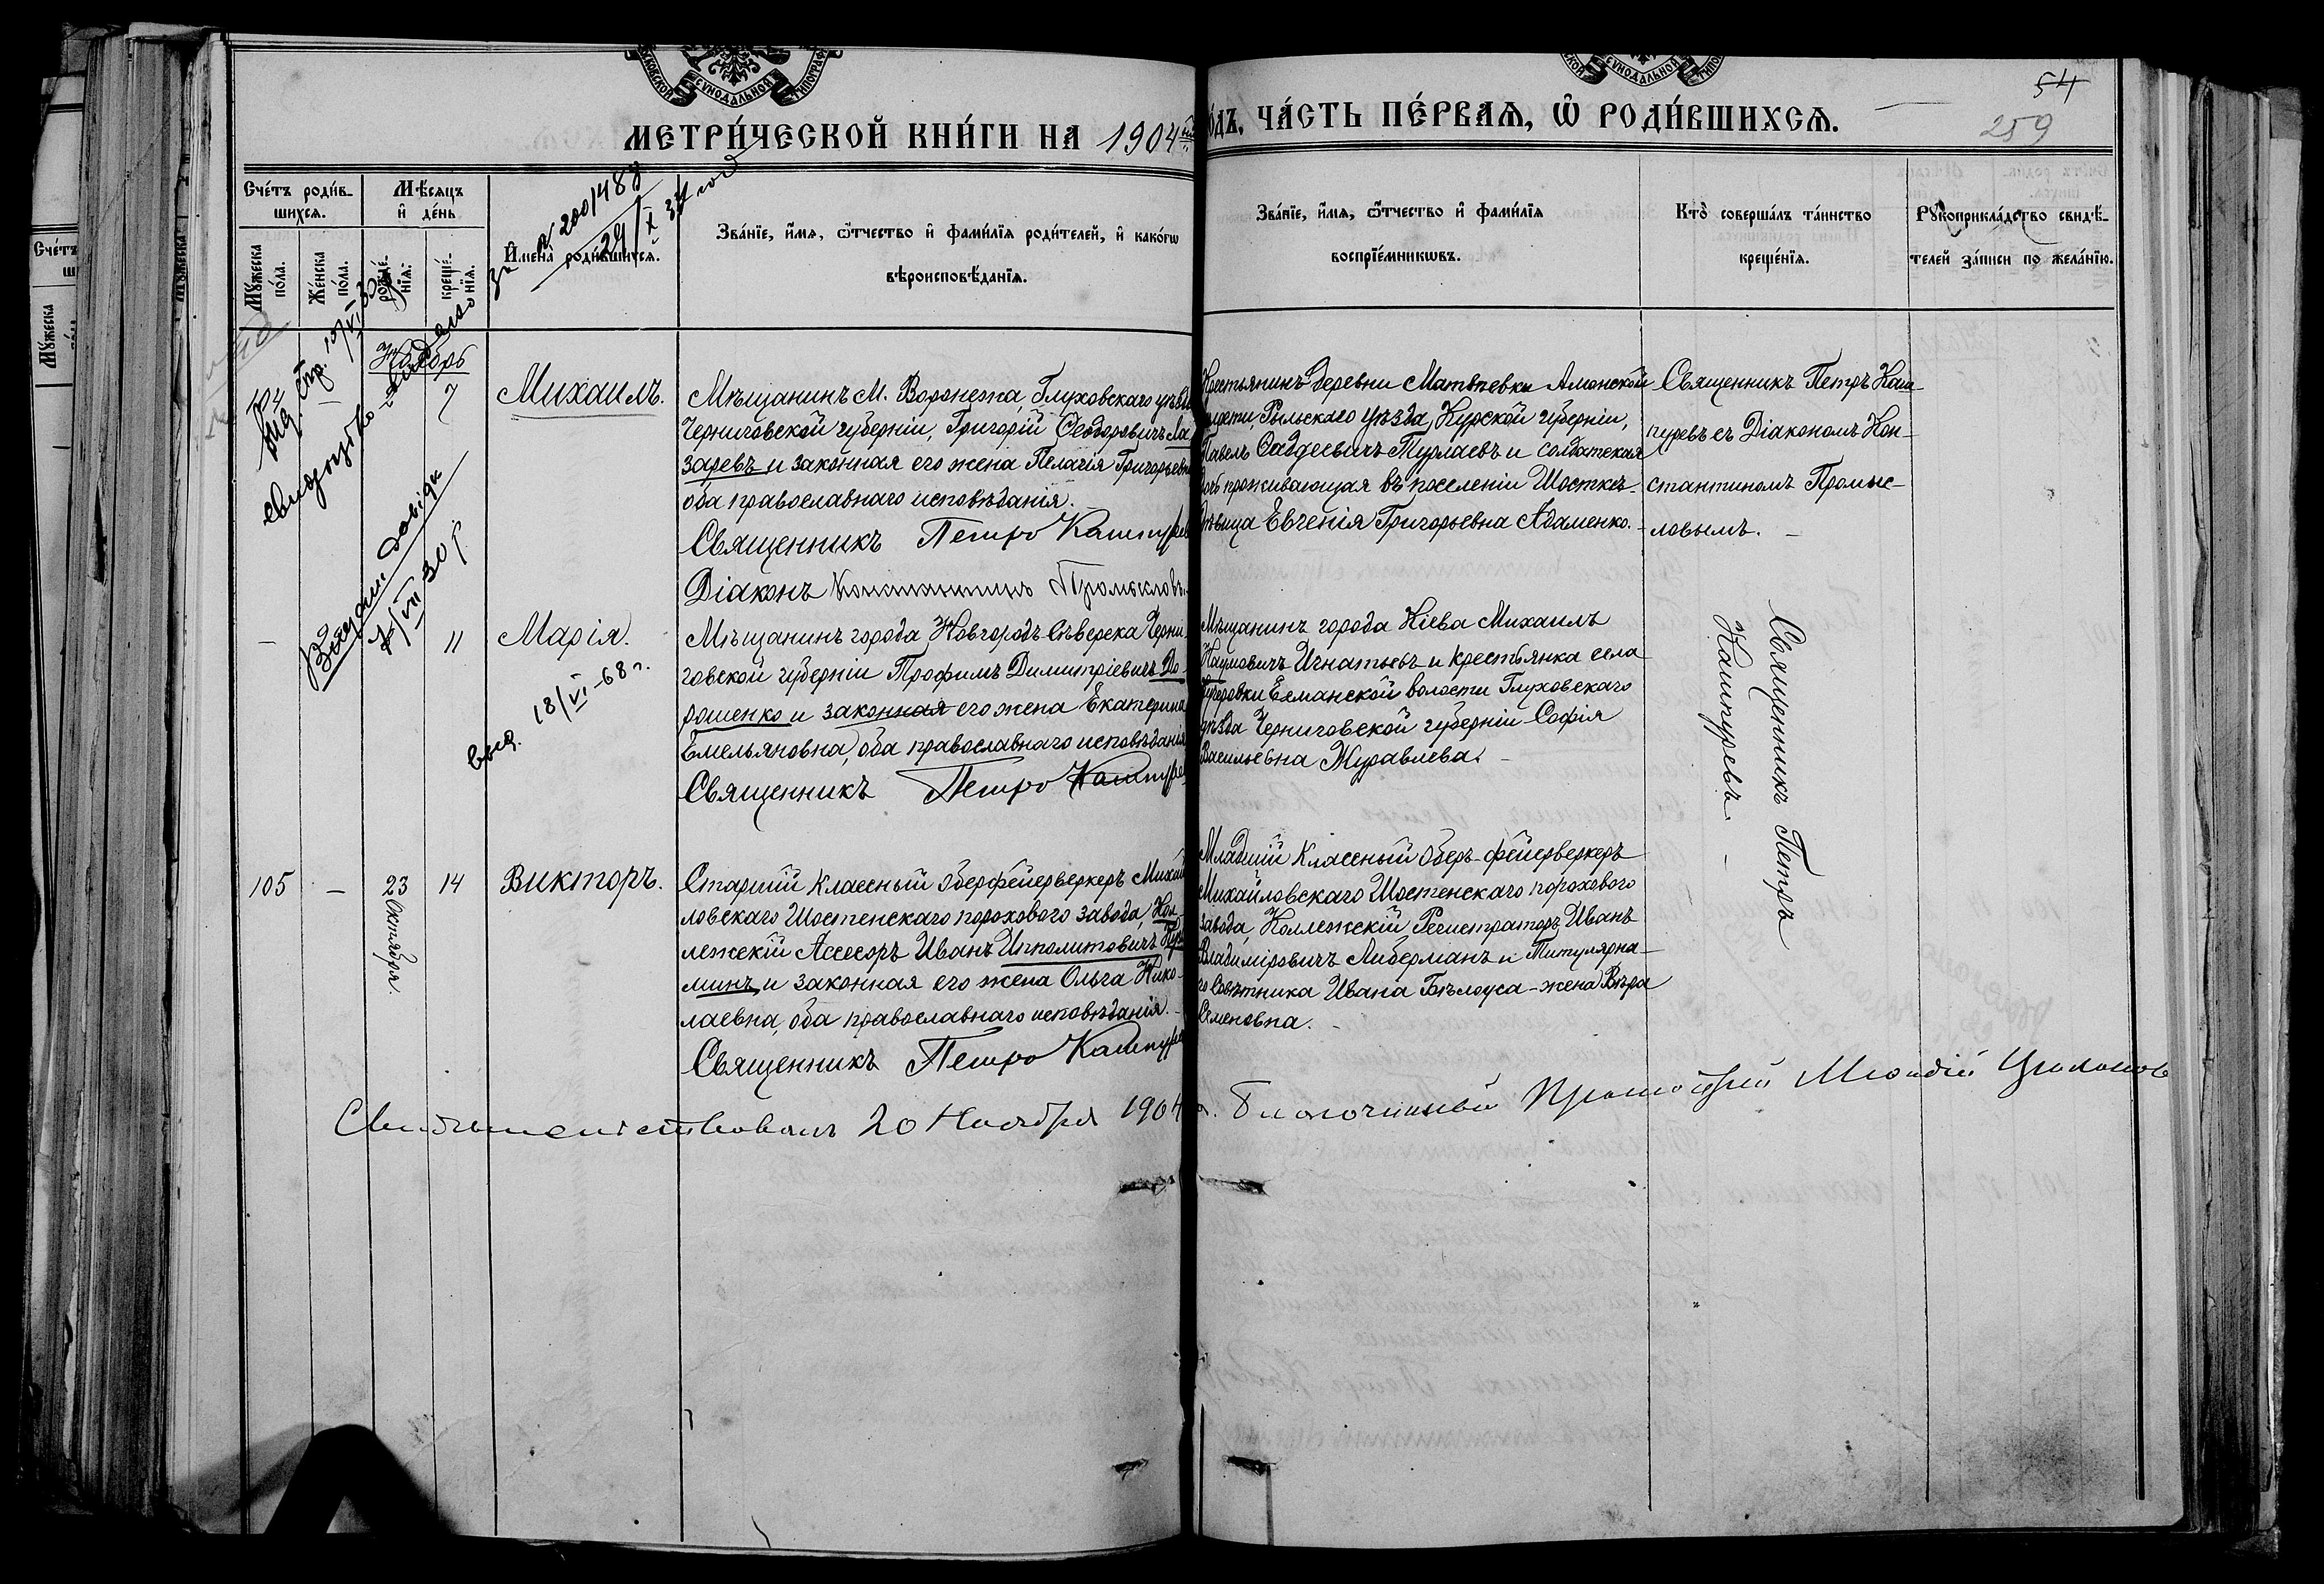 МОСКОВСКОЙ СѴНОДАЛЬНОЙ ТИПОГРАФ
СѴНОДАЛЬНОЙ
МЕТРИ́ЧЕСКОЙ КНИ́ГИ НА 1904ый
О́ДЪ, ЧА́СТЬ ПЕ́РВАѦ, Ѡ҆ РОДИ́ВШИХСѦ.
54
259
Сче́тъ роди́в-
шихсѧ.
Мѣ́сѧцъ
и҆ де́нь
Мꙋ́жеска
по́ла.
Же́нска
по́ла.
рожде́-
нїѧ.
креще́-
нїѧ.
И҆мена̀ роди́вшихсѧ.
Зва́нїе, и҆́мѧ, ѻ҆́тчество и҆ фами́лїѧ роди́телей, и҆ како́гѡ
вѣроисповѣ́данїѧ.
Зва́нїе, и҆́мѧ, ѻ҆́тчество и҆ фами́лїѧ
воспрїе́мникѡвъ.
Кто̀ соверша́лъ та́инство
креще́нїѧ.
Рꙋкоприкла́дство свидѣ́-
телей за́писи по жела́нїю.
2001488
29/X 34 год
104
Ноябрь
7
Михаилъ.
Мѣщанинъ М. Воронежа, Глуховскаго уѣзда
Черниговской губерніи, Григорій Ѳеодоровичъ Ла
заревъ и законная его жена Пелагія Григорьевна
оба православнаго исповѣданія.
Священникъ Петръ Кашпуревъ
Діаконъ Константинъ Промысловъ.
Крестьянинъ деревни Матвѣевки Амонской
Рыльскаго уѣзда, Курской губерніи,
Павелъ Ѳаддеевичъ Турлаевъ и солдатская
дочь проживающая въ поселеніи Шосткѣ-
дѣвица Евгенія Григорьевна Адаменко.-
Священникъ Петръ Каш-
пуревъ съ Діакономъ Кон-
стантиномъ Промыс-
ловымъ. -
Взяти довідки
VII 30 г
-
11
Марія.
вид. 18/VI-68 г.
Мѣщанинъ города Новгородъ-Сѣверска Черни-
говской губерніи Трофимъ Димитріевичъ До-
рошенко и законная его жена Екатерина
Емельяновна, оба православнаго исповѣданія
Священникъ Петръ Кашпуре
Мѣщанинъ города Кіева Михаилъ
Наумовичъ Игнатьевъ и крестьянка села
Есманской волости Глуховскаго
уѣзда Черниговской губерніи София
Васильевна Журавлева. -
Священникъ Петръ
Кашпуревъ. -
105
-
23
Октября.
14
Викторъ.
Старшій Классный Оберфейерверкеръ Михай
ловскаго Шостенскаго порохового завода, Кол-
лежскій Ассесоръ Иванъ Ипполитовичъ
минъ и законная его жена Ольга Нико-
лаевна, оба православнаго исповѣданія. -
Священникъ Петръ Кашпуре
Младшій Классный Оберъ-фейерверкеръ
Михайловскаго Шостенскаго порохового
завода, Коллежскій Регистраторъ Иванъ
Владиміровичъ Либерманъ и Титулярна-
го Совѣтника Ивана Бѣлоуса-жена Вѣра
Семеновна. -
Свидѣтельствовалъ 20 Ноября 1904 г. Благочинный Протоіерей